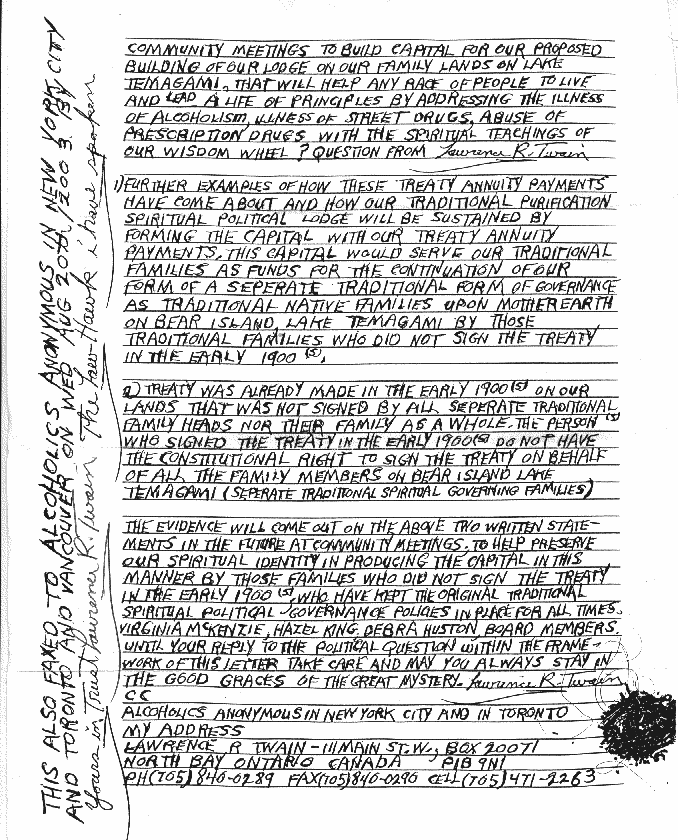 COMMUNITY MEETINGS TO BUILD CAPITAL FOR OUR PROPOSED
BUILDING OF OUR LODGE ON OUR FAMILY LANDS ON LAKE
TEMAGAMI, THAT WILL HELP ANY RACE OF PEOPLE TO LIVE
AND LEAD A LIFE OF PRINCIPLES BY ADDRESSING THE ILLNESS
OF ALCOHOLISM, ILLNESS OF STREET DRUGS, ABUSE OF
PRESCRIPTION DRUGS, WITH THE SPIRITUAL TEACHINGS OF
OUR WISDOM WHEEL? QUESTION FROM Lawrence R. Twain
1) FURTHER EXAMPLES OF HOW THESE TREATY ANNUITY PAYMENTS
HAVE COME ABOUT AND HOW OUR TRADITIONAL PURIFICATION
SPIRITUAL POLITICAL LODGE WILL BE SUSTAINED BY
FORMING THE CAPITAL WITH OUR TREATY ANNUITY
PAYMENTS. THIS CAPITAL WOULD SERVE OUR TRADITIONAL
FAMILIES AS FUNDS FOR THE CONTINUATION OF OUR
FORM OF A SEPERATE TRADITIONAL FORM OF GOVERNANCE
AS TRADITIONAL NATIVE FAMILIES UPON MOTHER EARTH
ON BEAR ISLAND, LAKE TEMAGAMI BY THOSE
TRADITIONAL FAMILIES WHO DID NOT SIGN THE TREATY
IN THE EARLY 1900(S),
2) TREATY WAS ALREADY MADE IN THE EARLY 1900(S) ON OUR
LANDS THAT WAS NOT SIGNED BY ALL SEPERATE TRADITIONAL
FAMILY HEADS NOR THEIR FAMILY AS A WHOLE. THE PERSON(S)
WHO SIGNED THE TREATY IN THE EARLY 1900(S) DO NOT HAVE
THE CONSTITUTIONAL RIGHT TO SIGN THE TREATY ON BEHALF
OF ALL THE FAMILY MEMBERS ON BEAR ISLAND LAKE
TEMAGAMI (SEPERATE TRADITIONAL SPIRITUAL GOVERNING FAMILIES)
THE EVIDENCE WILL COME OUT ON THE ABOVE TWO WRITTEN STATE-
MENTS IN THE FUTURE AT COMMUNITY MEETINGS. TO HELP PRESERVE
OUR SPIRITUAL IDENTITY IN PRODUCING THE CAPITAL IN THIS
MANNER BY THOSE FAMILIES WHO DID NOT SIGN THE TREATY
IN THE EARLY 1900(S), WHO HAVE KEPT THE ORIGINAL TRADITIONAL
SPIRITUAL POLITICAL GOVERNANCE POLICIES IN PLACE FOR ALL TIMES.
VIRGINIA MCKENZIE, HAZEL KING, DEBRA HUSTON, BOARD MEMBERS.
UNTIL YOUR REPLY TO THE POLITICAL QUESTION WITHIN THE FRAME-
WORK OF THIS LETTER TAKE CARE AND MAY YOU ALWAYS STAY IN
THE GOOD GRACES OF THE GREAT MYSTERY. Lawrence R. Twain
CC
ALCOHOLICS ANONYMOUS IN NEW YORK CITY AND IN TORONTO
MY ADDRESS
LAWRENCE R TWAIN - 111 MAIN ST. W., BOX 20071
NORTH BAY ONTARIO CANADA P1B 9N1
PH(705) 840-0289 FAX(705) 840-0290 CELL(705) 471-2263
THIS ALSO FAXED TO ALCOHOLICS ANONYMOUS IN NEW YORK CITY
AND TORONTO AND VANCOUVER ON WED AUG 20TH/2003. BY
Yours in Trust, Lawrence R. Twain The Law Hawk i have spoken